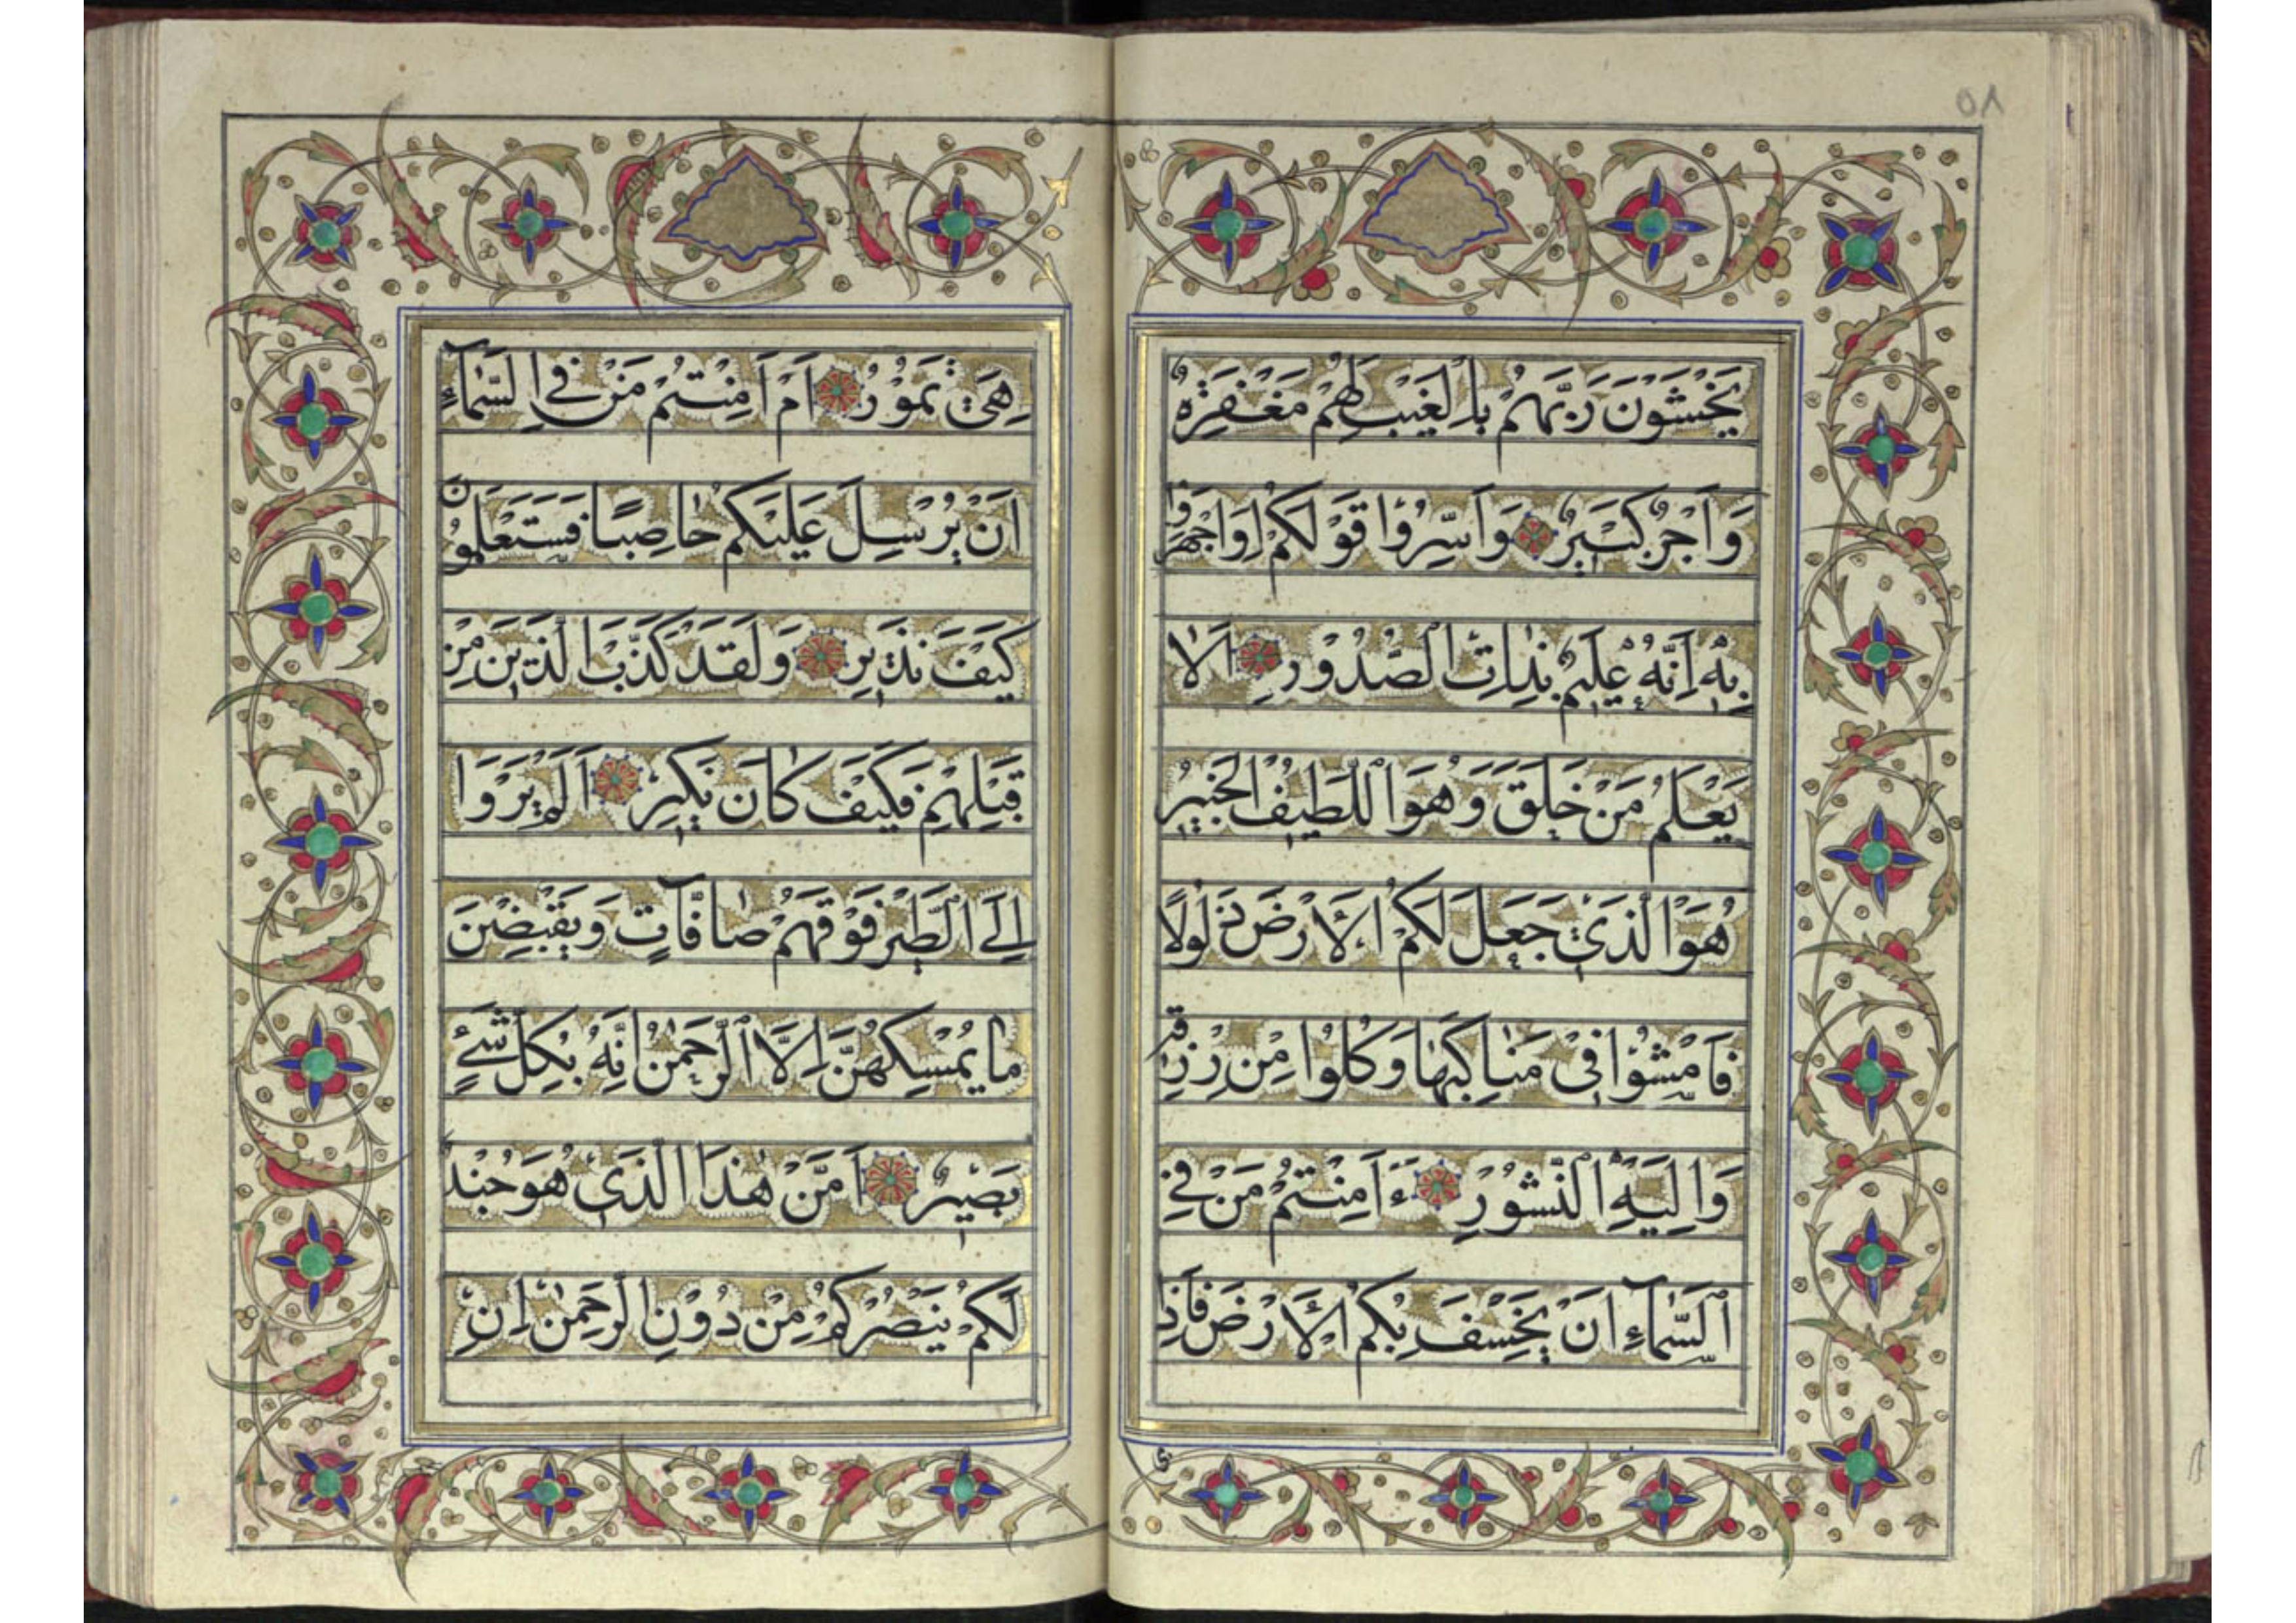 ٥٨
يَخْشَوْنَ رَبَّهُمْ بِالْغَيْبِ لَهُمْ مَغْفِرَةٌ
وَاَجْرٌ كَبيرٌ وَاَسِرُّوا قَوْلَكُمْ اَوِاجْهَرُوا
بِهِ اِنَّهُ عَليمٌ بِذاتِ الصُّدُورِ اَلا
يَعْلَمُ مَنْ خَلَقَ وَهُوَ اللَّطيفُ الْخَبيرُ
هُوَ الَّذي جَعَلَ لَكُمُ الْاَرْضَ ذَلُولًا
فَامْشُوا في مَناكِبِها وَكُلُوا مِنْ رِزْقِهِ
وَاِلَيْهِ النُّشُورُ ءَاَمِنْتُمْ مَنْ فِي
السَّمآءِ اَنْ يَخْسِفَ بِكُمُ الْاَرْضَ فَاِذا
هِيَ تَمُورُ اَمْ اَمِنْتُمْ مَنْ فِي السَّمآءِ
اَنْ يُرْسِلَ عَلَيْكُمْ حاصِبًا فَسَتَعْلَمُونَ
كَيْفَ نَذيرِ وَلَقَدْ كَذَّبَ الَّذينَ مِنْ
قَبْلِهِمْ فَكَيْفَ كانَ نَكيرِ اَلَمْ يَرَوْا
اِلَى الطَّيْرِ فَوْقَهُمْ صآفَّاتٍ وَيَقْبِضْنَ
ما يُمْسِكُهُنَّ اِلَّا الرَّحْمنُ اِنَّهُ بِكُلِّ شَيْءٍ
بَصيرٌ اَمَّنْ هذَا الَّذي هُوَ جُنْدٌ
لَكُمْ يَنْصُرُكُمْ مِنْ دُونِ الرَّحْمنِ اِنِ